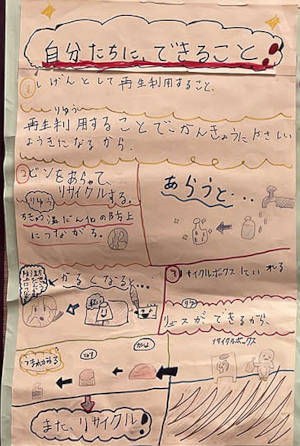 自分たちに、できること。
①しげんとして再生利用すること。
りゆう
再生利用することでかんきょうにやさしい
ようきになるから。
②ビンをあらって、
リサイクルする。
りゆう
温だん化の防止
につながる。
あらうと…
かるくなると…
③リサイクルボックスにいれる
りゆう
リユースができるから、
リサイクルボックス
また、リサイクル!